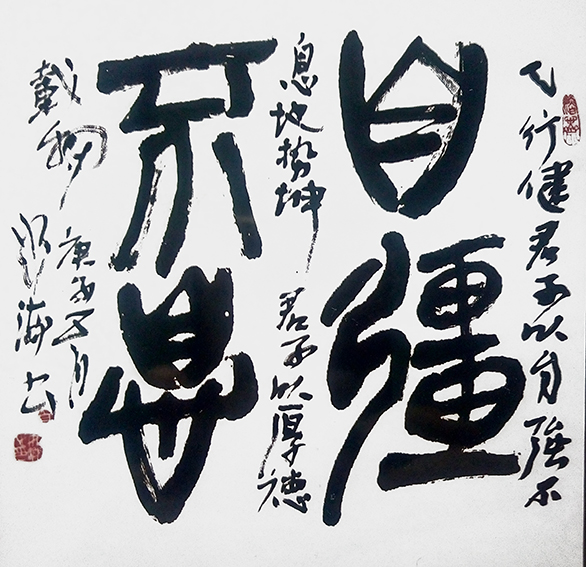 天行健君子以自強不
自彊
息地势坤君子以厚德
不息
載物
庚
月
海书